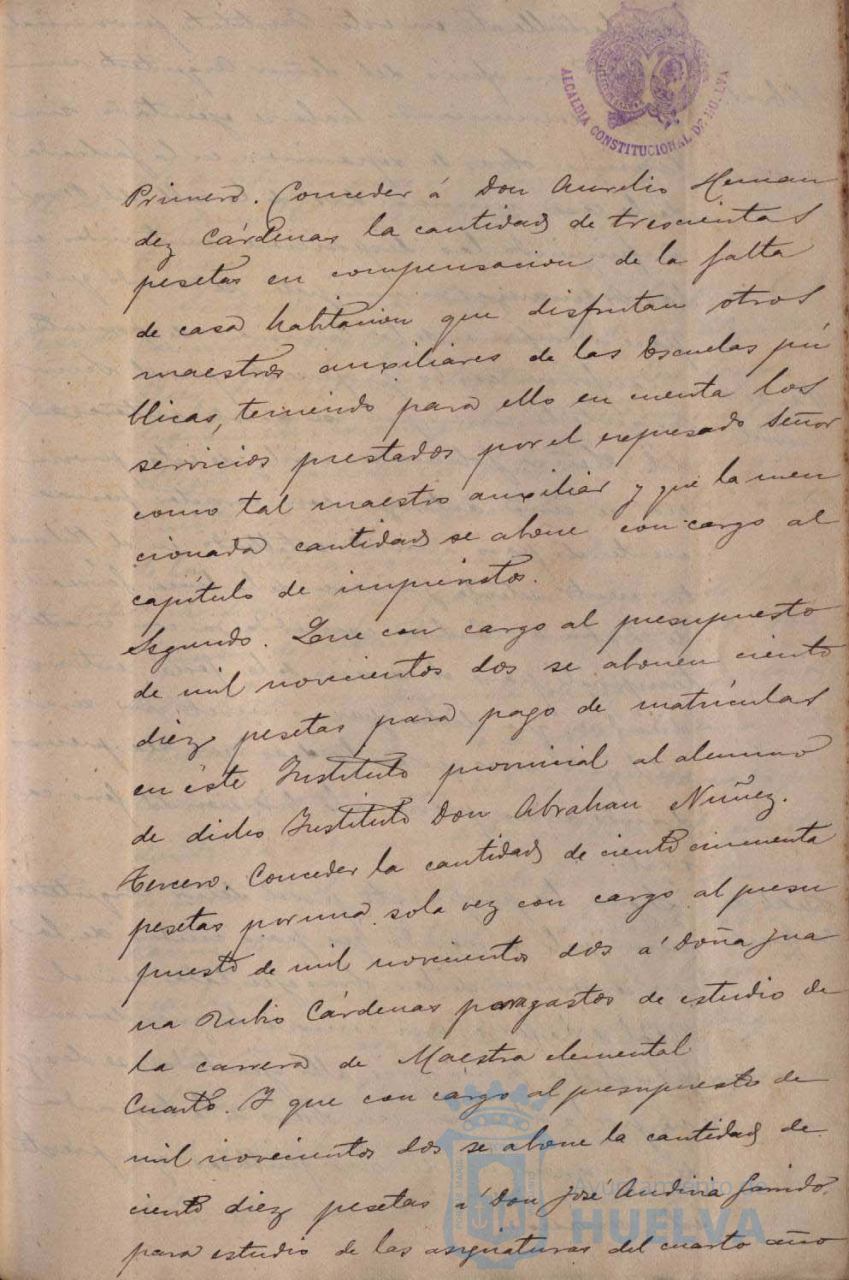 ALCALDIA CONSTITUCIONAL DE HUELVA
Primero. Conceder á Don Aurelio Hernan
dez Cárdenas la cantidad de trescientas
pesetas en compensacion de la falta
de casa habitacion que disfrutan otros
maestros auxiliares de las Escuelas pú
blicas, teniendo para ello en cuenta los
servicios prestados por el expresado Señor
como tal maestro auxiliar y que la men
cionada cantidad se abone con cargo al
capítulo de imprevistos.
Segundo. Que con cargo al presupuesto
de mil novecientos dos se abonen ciento
diéz pesetas para pago de matrículas
en éste Instituto provincial al alumno
de dicho Instituto Don Abrahan Nuñez.
Tercero. Conceder la cantidad de ciento cincuenta
pesetas por una sola vez con cargo al presu
puesto de mil novecientos dos a' Doña Jua
na Rubio Cárdenas para gastos de estudio de
la carrera de Maestra elemental
Cuarto. Y que con cargo al presupuesto de
mil novecientos dos se abone la cantidad de
ciento diez pesetas a' Don José Garrido.
para estudio de las asignaturas del cuarto año
Ayuntamiento de
HUELVA